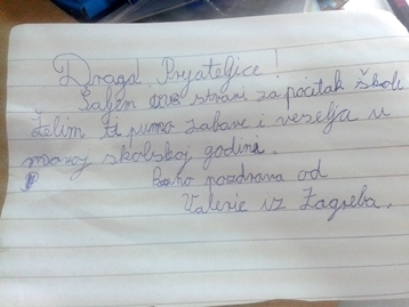 Draga Pryateljice!
Šaljem ove strani za početak škole
Želim ti puno zabave i veselja u
novoj školskoj godini.
pozdrava od
Valerie iz Zagreba.